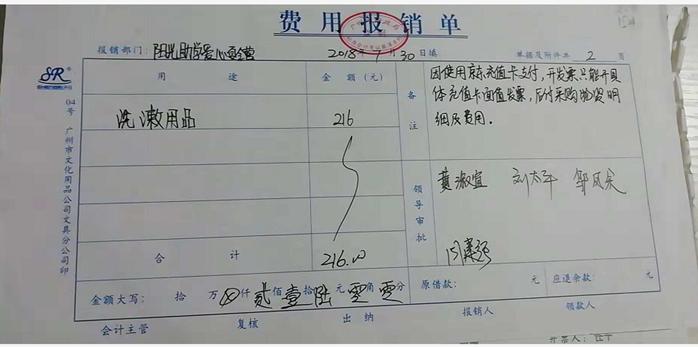 费用报销单
报销部门: 阳光助学爱心夏令营 2018 7月30日填 单据及附件共 2 页
用途 金额(元)
洗漱用品 216
合计 216.00
备注
因使用京东充值卡支付,开发票只能开具
体充值卡面值发票,后付采购物资明
细及费用.
领导审批
黄淑宜 刘太平
金额大写: 拾 万 仟 贰佰 壹拾 陆元 零角 零分 原借款: 元 应退余款: 元
会计主管 复核 出纳 报销人 领款人
SR
04号 广州市文化用品公司文具分公司印